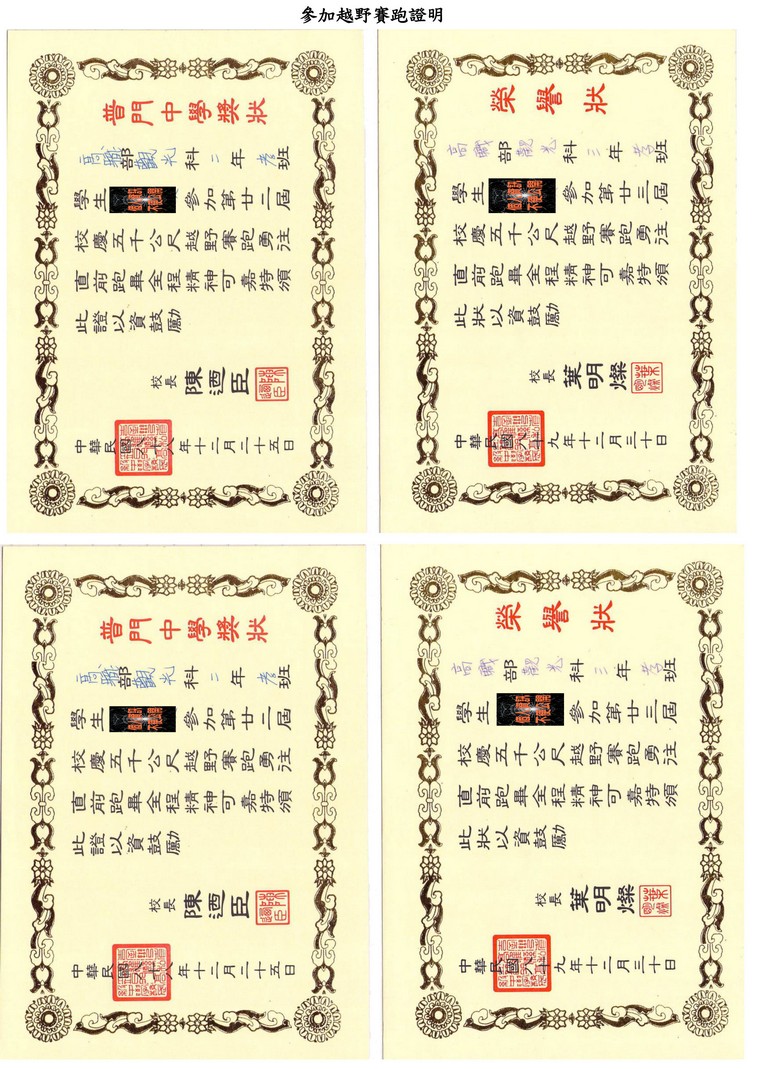 參加越野賽跑證明
普門中學獎狀
高職部觀光科二年孝班
學生 參加第廿二屆
校慶五千公尺越野賽跑勇往
直前跑畢全程精神可嘉特頒
此證以資鼓勵
校長 陳迺臣
中華民國八十八年十二月二十五日
榮譽狀
高職部觀光科三年孝班
學生 參加第廿三屆
校慶五千公尺越野賽跑勇往
直前跑畢全程精神可嘉特頒
此狀以資鼓勵
校長 葉明燦
中華民國八十九年十二月三十日
普門中學獎狀
高職部觀光科二年孝班
學生 參加第廿二屆
校慶五千公尺越野賽跑勇往
直前跑畢全程精神可嘉特頒
此證以資鼓勵
校長 陳迺臣
中華民國八十八年十二月二十五日
榮譽狀
高職部觀光科三年孝班
學生 參加第廿三屆
校慶五千公尺越野賽跑勇往
直前跑畢全程精神可嘉特頒
此狀以資鼓勵
校長 葉明燦
中華民國八十九年十二月三十日